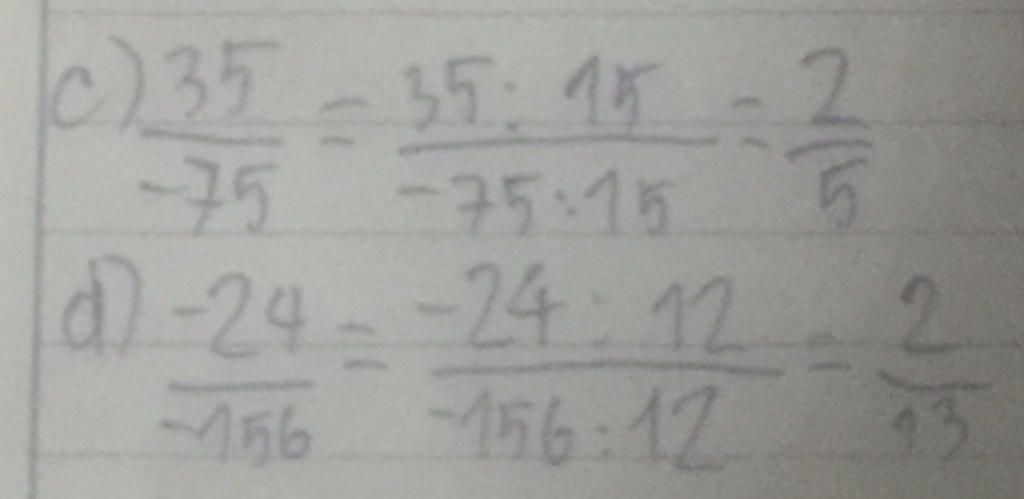 c) 35/-75 = 35 : 15/-75 : 15 = 2/5
d) -24/-156 = -24 : 12/-156 : 12 = 2/13